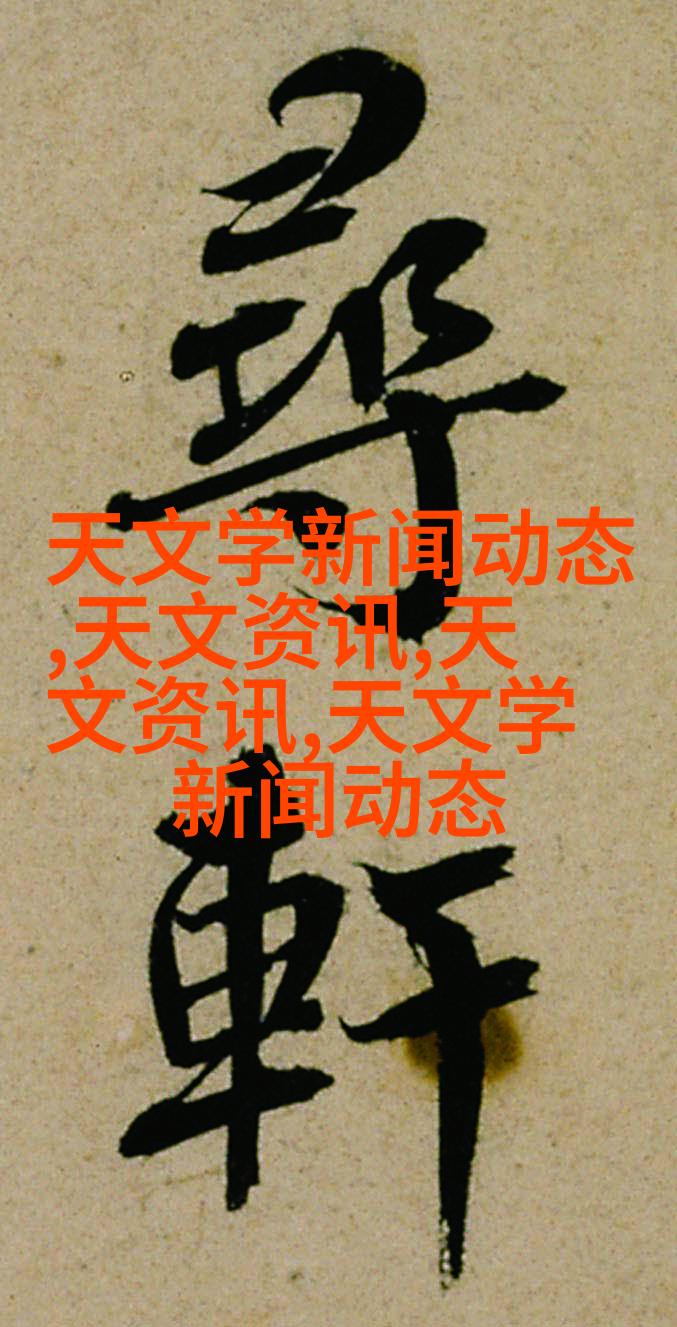 尋
軒
天文学新闻动态
,天文资讯,天
文资讯,天文学
新闻动态